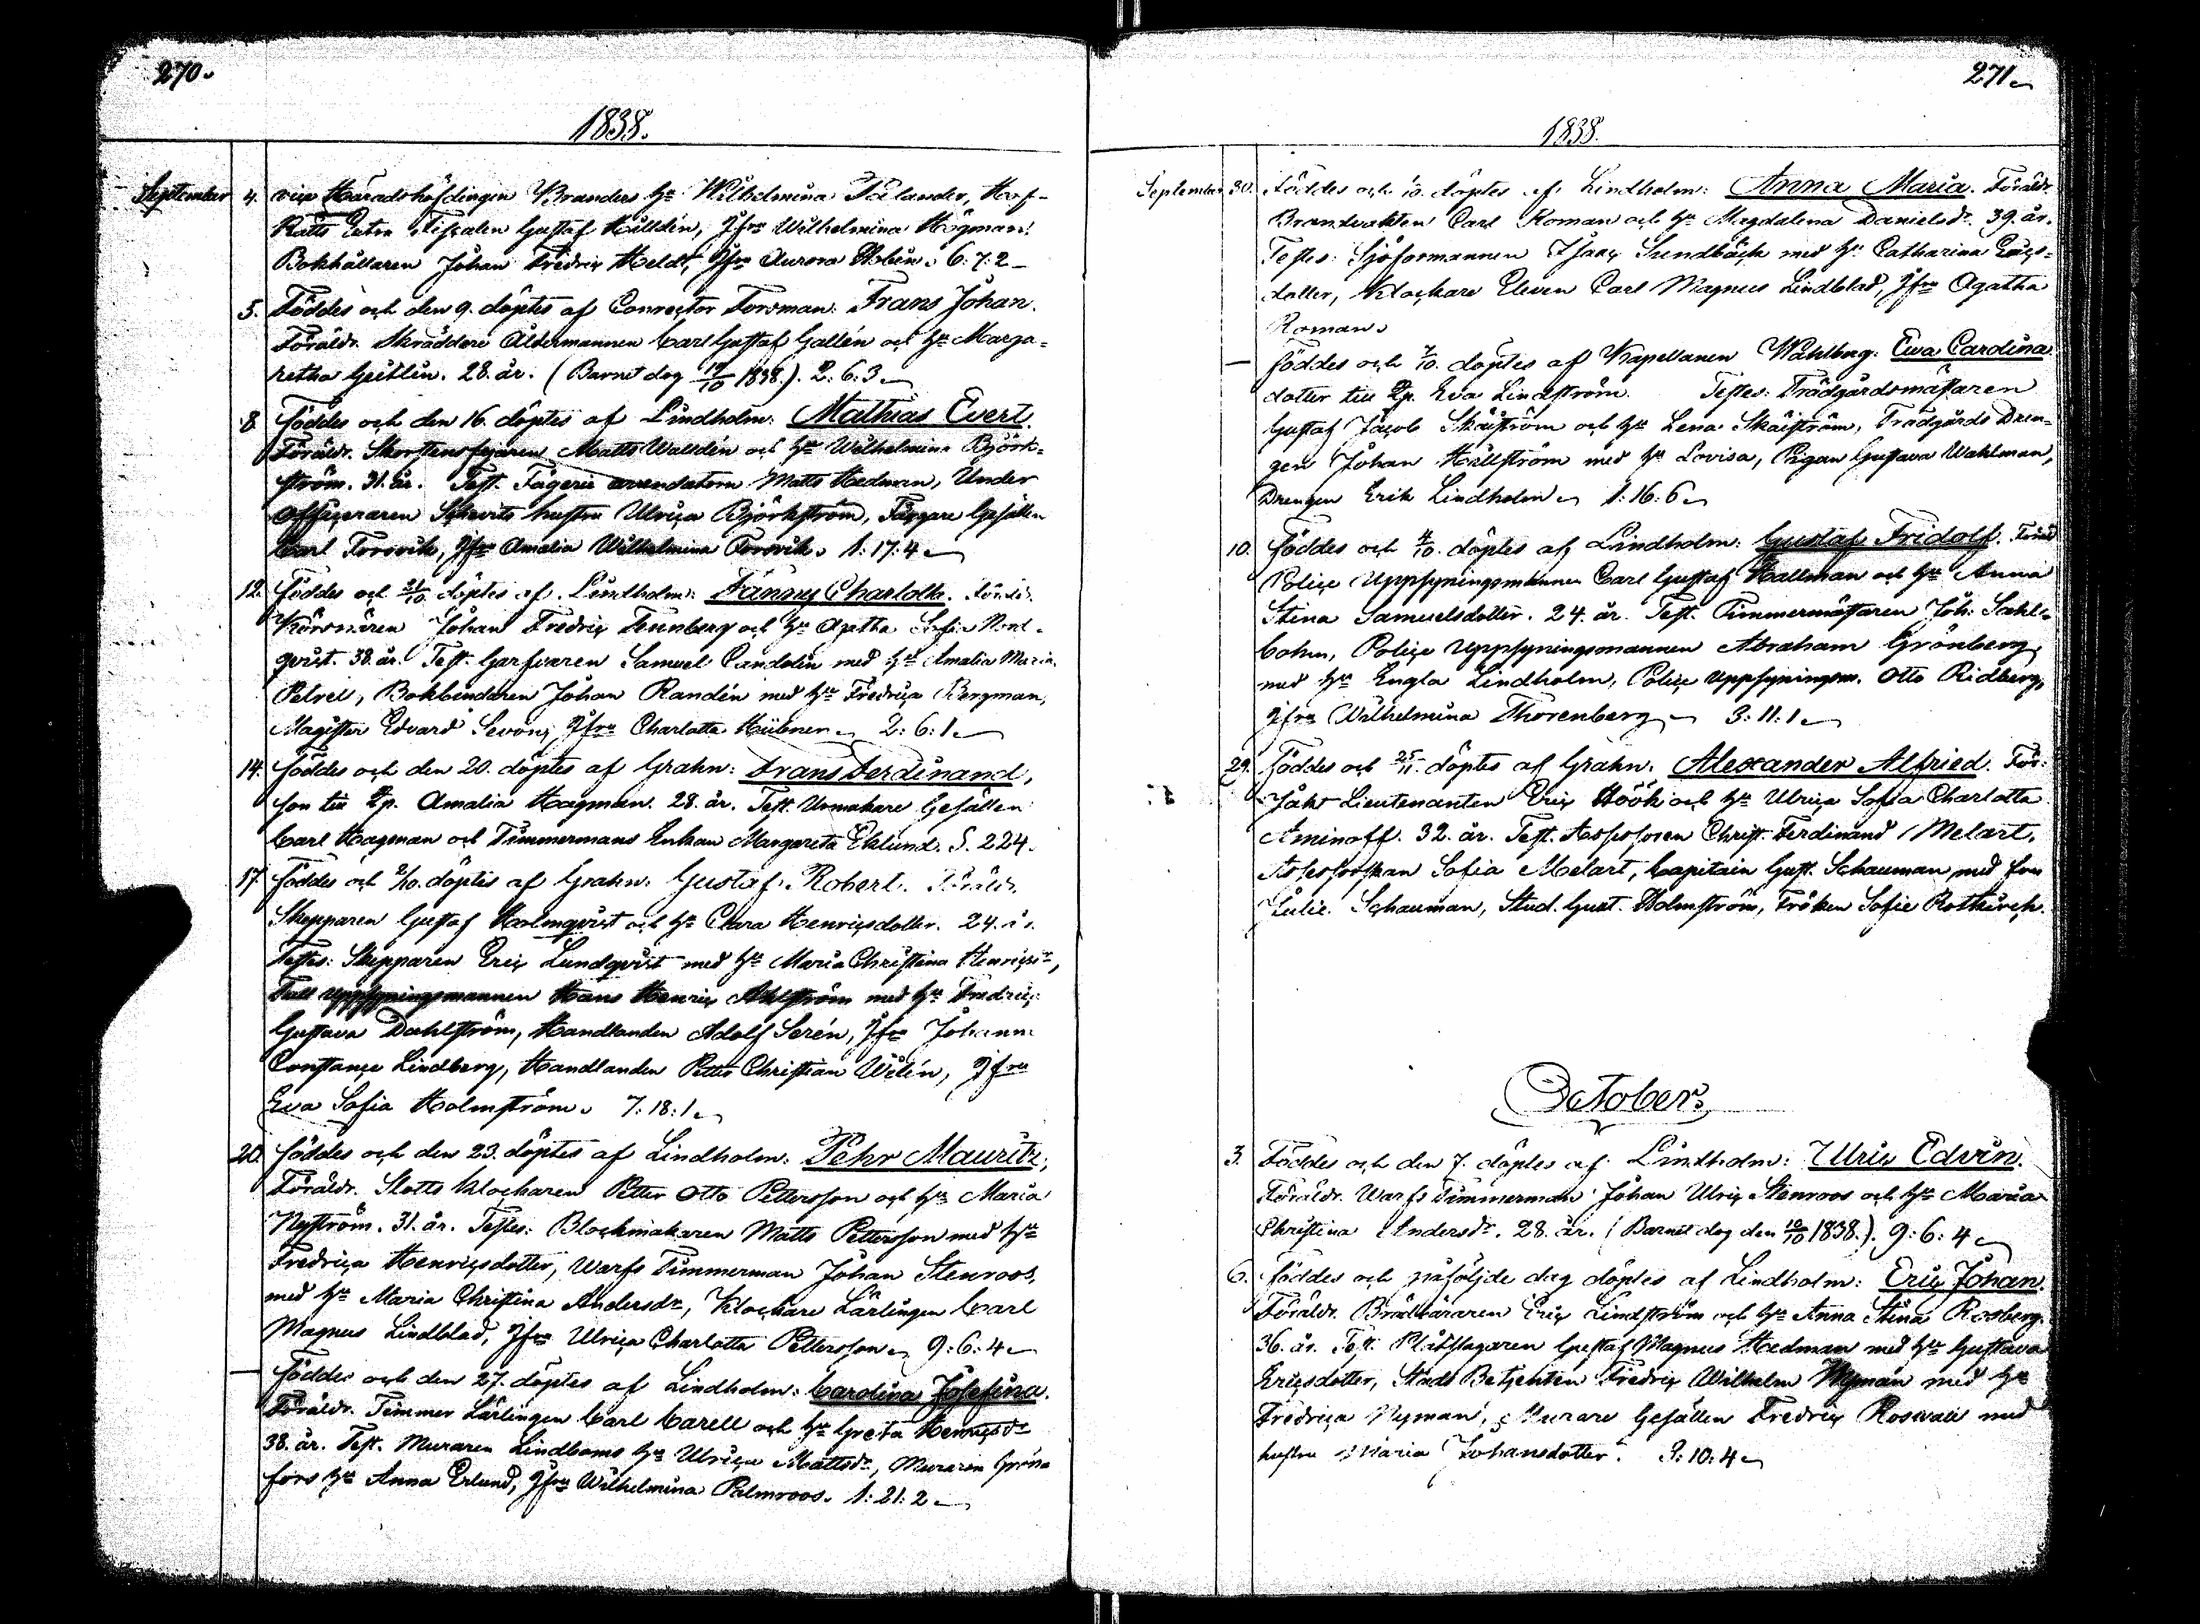 270.
1838.
September 4. Häradshöfdingen Branders hu Wilhelmina Tölander, Hof-
Rätts Extra Fiscalen Gustaf Hälldén, Jfru Wilhelmina Högman!
Bokhållaren Johan Fredric Heldt, Jfru Aurora 6:7:2
5. Föddes och den 9. döptes af Conrector Forsman: Frans Johan.
Föräldr. Skräddare Åldermannen Carl Gustaf Gallén och hu Marga-
retha Geitlin. 28. år. (Barnet dog 19/10 1838.). 2:6:3
8. Föddes och den 16. döptes af Lindholm: Mathias Evert.
Föräldr. Skorstensfejaren Matts Walldén och hu Wilhelmina Björk-
ström. 31. år. Test. Fägerie arrendatorn Matts Hedman, Under
officeraren hustru Ulrica Björkström, Färgare Gesällen
Carl Forsvik, Jfru Amalia Wilhelmina Forsvik. 1:17:4
12. Föddes och 21/10 döptes af Lindholm: Fanny Charlotte. Föräldr.
Körsnären Johan Fredric Tennberg och hu Agatha Sofia Nord-
qvist. 38. år. Test. Garfvaren Samuel Candolin med hu Amalia Maria
Petrel, Bokbindaren Johan Randén med hu Fredrica Bergman,
Magister Edvard Sevon, Jfru Charlotta Hübner 2:6:1
14. Föddes och den 20. döptes af Grahn: Frans Ferdinand,
son till Amalia Hagman. 28. år. Test. Urmakare Gesällen
Carl Hagman och Timmermans Enkan Margareta Eklund. S. 224.
17. Föddes och 2/10. döptes af Grahn: Gustaf Robert. Föräldr.
Skepparen Gustaf Holmqvist och hu Clara Henricsdotter. 24. år.
Testes: Skepparen Eric Lundqvist med hu Maria Christina Henricsdr,
Tull Uppsyningsmannen Hans Henric Ahlström med hu Fredrica
Gustava Dahlström, Handlanden Adolf Serén, Jfru Johanna
Constance Lindberg, Handlanden Petter Christian Wilén, Jfru
Eva Sofia Holmström. 7:18:1
20. Föddes och den 23. döptes af Lindholm: Pehr Mauritz;
Föräldr. Slotts Klockaren Petter Otto Pettersson och hu Maria
Nyström. 31. år. Testes: Blockmakaren Matts Pettersson med hu
Fredrica Henricsdotter, Warfs Timmerman Johan Stenroos,
med hu Maria Christina Andersdr, Klockare Lärlingen Carl
Magnus Lindblad, Jfru Ulrica Charlotta Pettersson 9:6:4
— Föddes och den 27. döptes af Lindholm: Carolina Josefina.
Föräldr. Timmer Lärlingen Carl Carell och hu Greta Henricsdr
38. år. Test. Muraren Lindboms hu Ulrica Mattsdr, Muraren Gröna
fors hu Anna Erlund, Jfru Wilhelmina Palmroos. 1:21:2
271
1838.
September 30. Föddes och döptes af Lindholm: Anna Maria. Föräldr.
Brandvakten Carl Roman och hu Magdalena Danielsdr. 39. år.
Testes: Sjöformannen Isaac Sundbäck med hu Catharina Erics-
dotter, Klockare Eleven Carl Magnus Lindblad, Jfru Agatha
Roman.
— Föddes och 7/10. döptes af Kapellanen Wahlberg: Eva Carolina
dotter till Eva Lindström. Testes: Trädgårdsmästaren
Gustaf Jacob Skärström och hu Lena Skärström, Trädgårds Dren-
gen Johan Hällström med hu Lovisa, Pigan Gustava Wahlman,
Drengen Erik Lindholm 1:16:6
10. Föddes och 4/10. döptes af Lindholm: Gustaf Fridolf. Föräld
Police Uppsyningsmannen Carl Gustaf Hallman och hu Anna
Stina Samuelsdotter. 24. år. Test. Timmermästaren Joh. Sahl-
bohm, Police Uppsyningsmannen Abraham Grönberg,
med hu Engla Lindholm, Police Uppsyningsm. Otto Ridberg,
Jfru Wilhelmina Thorenberg 3:11:1
29. Föddes och 25/11. döptes af Grahn: Alexander Alfried. För:
Lieutenanten Eric Höök och hu Ulrica Sofia Charlotta
Aminoff. 32. år. Test. Assessoren Christ. Ferdinand Melart,
Assessorskan Sofia Melart, Capitain Gust. Schauman med fru
Julie Schauman, Stud. Gust. Holmström, Fröken Sofie Rotkirch.
October.
3. Föddes och den 7. döptes af Lindholm: Ulric Edvin.
Föräldr. Warfs Timmerman Johan Ulric Stenroos och hu Maria
Christina Andersdr. 28. år. (Barnet dog den 10/10 1838.). 9:6:4
6. Föddes och påföljde dag döptes af Lindholm: Eric Johan.
Föräldr. Eric Lindström och hu Anna Stina Rosberg.
36. år. Test. Plåtslagaren Gustaf Magnus Hedman med hu Gustava
Ericsdotter, Stads Betjenten Fredric Wilhelm Nyman med hu
Fredrica Nyman, Murare Gesällen Fredric Roswall med
hustru Maria Johansdotter. 3:10:4